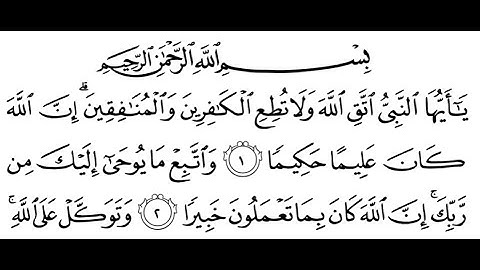 بِسْمِ اللَّهِ الرَّحْمَٰنِ الرَّحِيمِ
يَٰٓأَيُّهَا النَّبِيُّ اتَّقِ اللَّهَ وَلَا تُطِعِ الْكَٰفِرِينَ وَالْمُنَٰفِقِينَ ۗ إِنَّ اللَّهَ
كَانَ عَلِيمًا حَكِيمًا ١ وَاتَّبِعْ مَا يُوحَىٰٓ إِلَيْكَ مِن
رَّبِّكَ ۚ إِنَّ اللَّهَ كَانَ بِمَا تَعْمَلُونَ خَبِيرًا ٢ وَتَوَكَّلْ عَلَى اللَّهِ ۚ